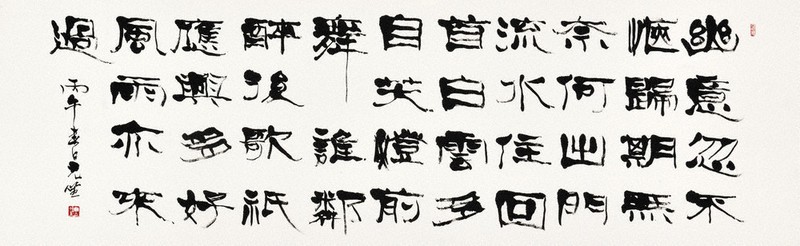 幽意忽不
愜歸期無
奈何出門
流水住回
首白雲多
自笑燈前
舞誰鄰
醉後歌祇
應興多好
風雨亦來
過
丙午春